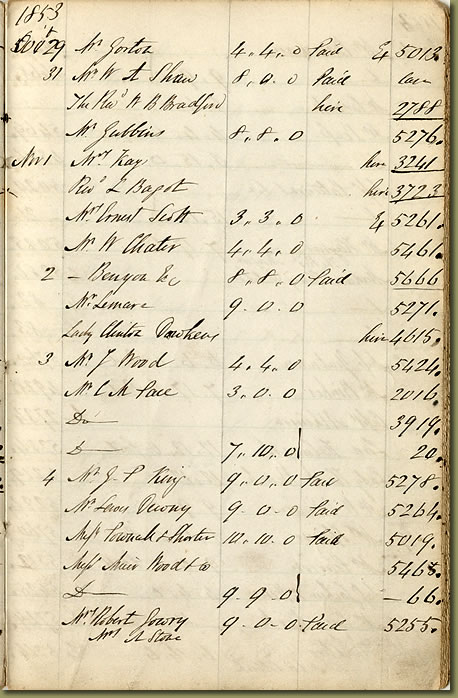 1853
Oct 29 Mr Gorton 4 . 4 . 0 Paid Ex 5013.
31 Mr W A Shaw 8 . 0 . 0 Paid
The Revd W B Bradford hire 2788
Mr Gubbins 8 . 8 . 0 5276.
Nov 1 Mrs Kay hire 3241
Revd L Bagot hire 3723
Mrs Ernest Scott 3 . 3 . 0 Ex 5261.
Mr W Chater 4 . 4 . 0 5461.
2 – Benyon Esq 8 . 8 . 0 Paid 5666
Mr Lemare 9 . 0 . 0 5271.
Lady Clinton hire 4615.
3 Mr J Wood 4 . 4 . 0 5424.
Mr C M Pace 3 . 0 . 0 2016.
Do 3919.
D 7 . 10 . 0 20.
4 Mr J P King 9 . 0 . 0 Paid 5278.
Mr 9 . 0 . 0 Paid 5264.
Messrs & Shorter 10 . 10 . 0 Paid 5019.
Messrs Muir Wood & Co 5468.
D 9 – 9 – 0 – 66.
Mr Robert Lowry 9 – 0 – 0 Paid 5255.
Mrs A Stone